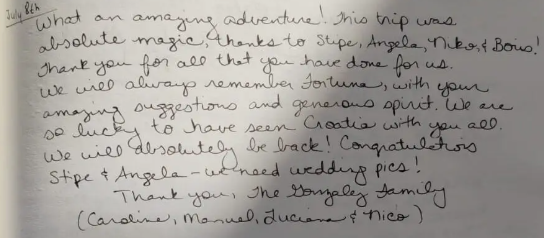 July 8th
What an amazing adventure! This trip was
absolute magic, thanks to Stipe, Angela, Niko, & Boris!
Thank you for all that you have done for us.
We will always remember Fortuna, with your
amazing suggestions and generous spirit. We are
so lucky to have seen Croatia with you all.
We will absolutely be back! Congratulations
Stipe & Angela - we need wedding pics!
Thank you, The Gonzalez Family
(Caroline, Manuel, Luciana & Nico)